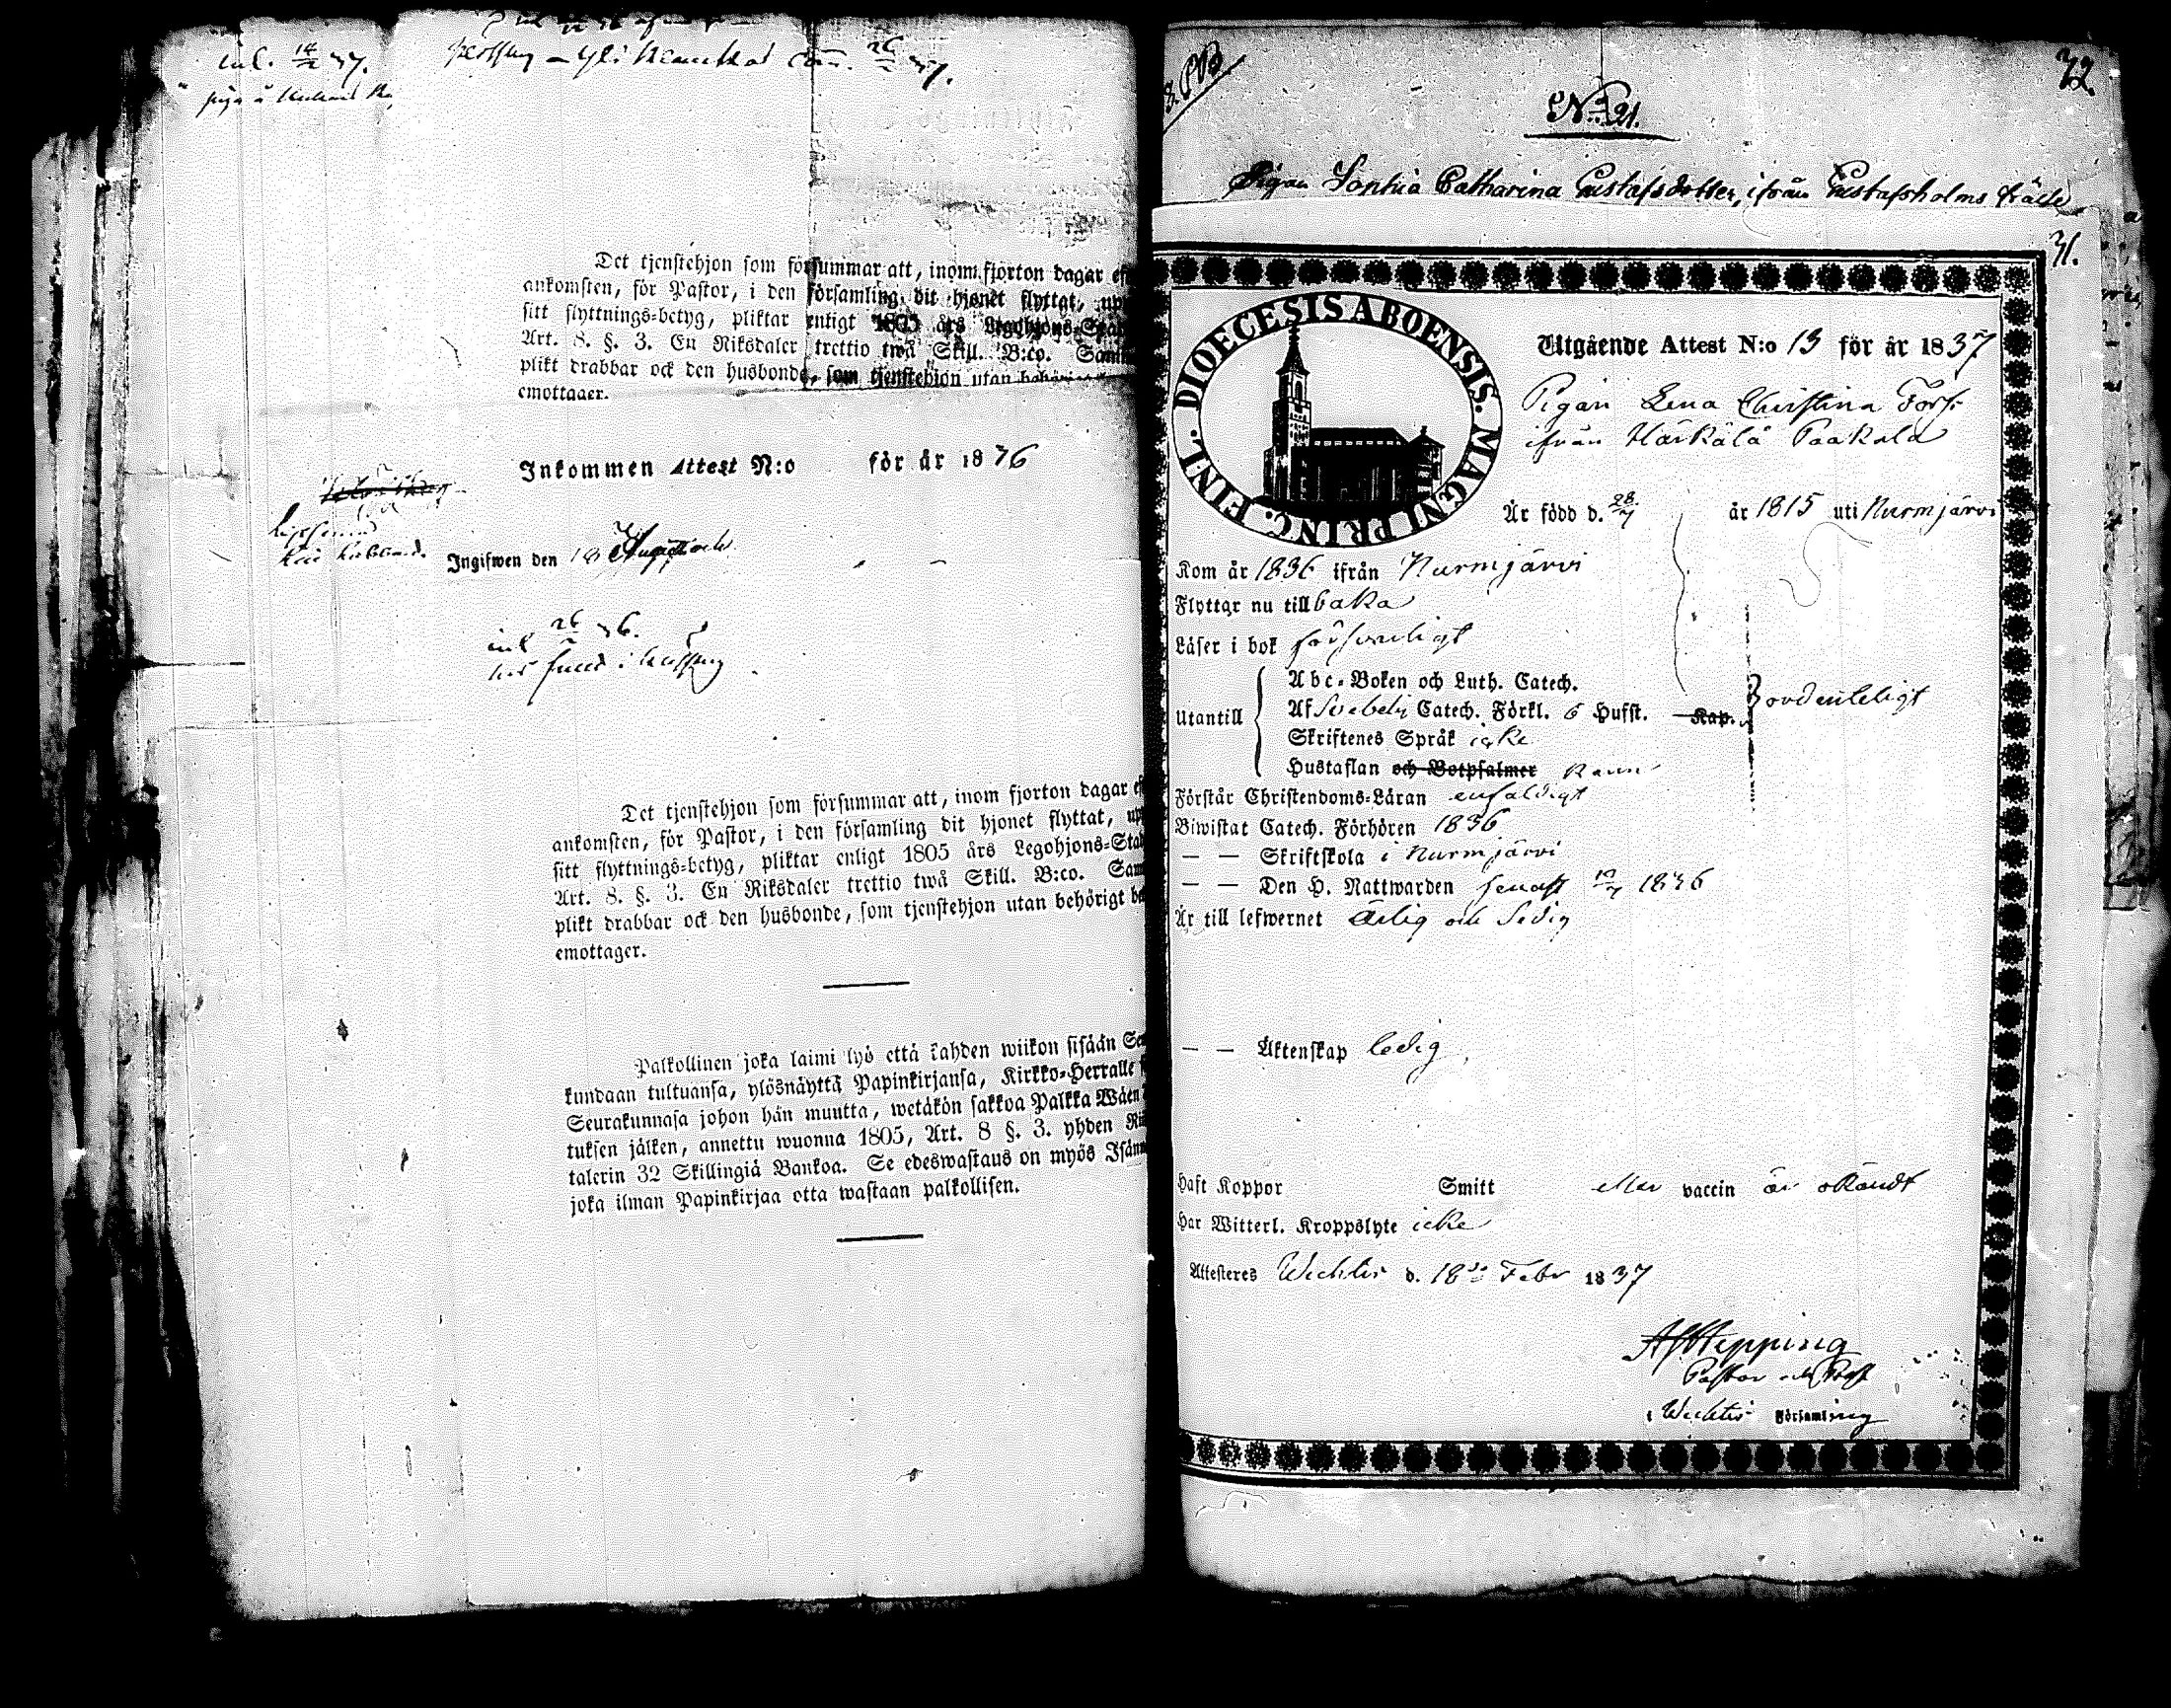 inl. 14/2 37.
26/2 37.
Det tjenstehjon som försummar att, inom fjorton dagar ef
ankomsten, för Pastor, i den församling dit hjonet flyttat, up
sitt flyttnings-betyg, pliktar enligt 1805 års Legohjons-Stad
Art. 8. §. 3. En Riksdaler trettio twå Skill. B:co. Samm
plikt drabbar ock den husbonde, som tjenstehjon utan behörigt
emottager.
Inkommen Attest N:o för år 1836
Ingifwen den 18
inl 26 36.
Det tjenstehjon som försummar att, inom fjorton dagar ef
ankomsten, för Pastor, i den församling dit hjonet flyttat, up
sitt flyttnings-betyg, pliktar enligt 1805 års Legohjons-Stad
Art. 8. §. 3. En Riksdaler trettio twå Skill. B:co. Sam
plikt drabbar ock den husbonde, som tjenstehjon utan behörigt be
emottager.
Palkollinen joka laimi lyö että kahden wiikon sisään Seu
kundaan tultuansa, ylösnäyttä Papinkirjansa, Kirkko-Herralle s
Seurakunnasa johon hän muutta, wetäkön sakkoa Palkka Wäen
tuksen jälken, annettu wuonna 1805, Art. 8 §. 3. yhden Rii
talerin 32 Skillingiä Bankoa. Se edeswastaus on myös Isänn
joka ilman Papinkirjaa otta wastaan palkollisen.
32.
N:o 21.
Pigan Sophia Catharina Gustafsdotter, ifrån Gustafsholms frälse
31.
DIOECESIS ABOENSIS. MAGNI PRINC. FINL.
Utgående Attest N:o 13 för år 1837
Pigan Lena Christina Forss
ifrån Härkälä Paakala
Är född d. 28/7 år 1815 uti Nurmjärvi
Kom år 1836 ifrån Nurmjärvi
Flyttar nu tillbaka
Läser i bok försvarligt
Abc-Boken och Luth. Catech.
Utantill Af Svebelij Catech. Förkl. 6 Hufst. Kap. ordenteligt
Skriftenes Språk icke
Hustaflan och Botpsalmer kann
Förstår Christendoms-Läran enfaldigt
Biwistat Catech. Förhören 1836
— — Skriftskola i Nurmjärvi
— — Den H. Nattwarden senast 10/7 1836
Är till lefwernet Ärlig och Sedig
— — Äktenskap ledig
Haft Koppor Smitt eller vaccin är okändt
Har Witterl. Kroppslyte icke
Attesteres Wichtis d. 18de Febr 1837
Pastor och Prost
i Wichtis Församling